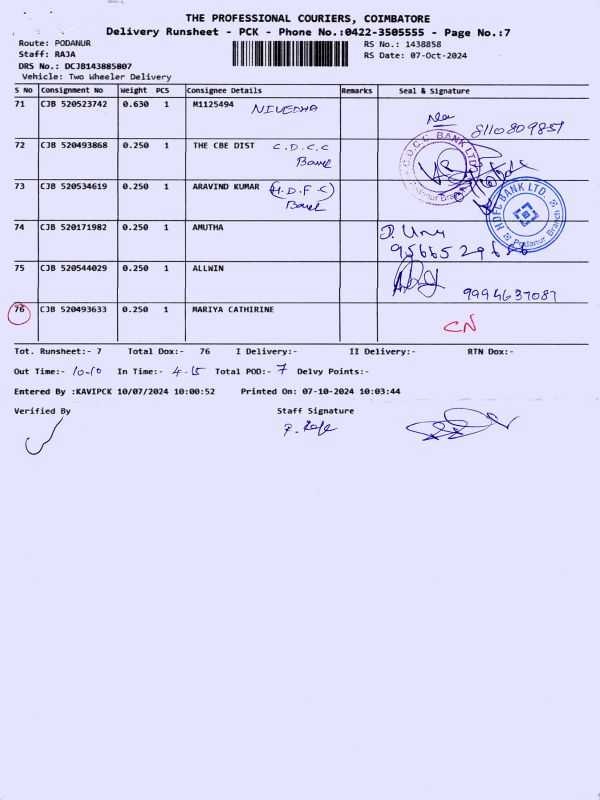 THE PROFESSIONAL COURIERS, COIMBATORE
Delivery Runsheet - PCK - Phone No.:0422-3505555 - Page No.:7
Route: PODANUR
Staff: RAJA
DRS No.: DCJB143885807
Vehicle: Two Wheeler Delivery
RS No.: 1438858
RS Date: 07-Oct-2024
S No Consignment No Weight PCS Consignee Details Remarks Seal & Signature
71 CJB 520523742 0.630 1 M1125494 NIVEDHA
8110809851
72 CJB 520493868 0.250 1 THE CBE DIST C.D.C.C
Bank
C.D.C.C. BANK LTD
73 CJB 520534619 0.250 1 ARAVIND KUMAR H.D.F.C
Bank
HDFC BANK LTD.
Podanur Branch
74 CJB 520171982 0.250 1 AMUTHA
75 CJB 520544029 0.250 1 ALLWIN
9994637087
76 CJB 520493633 0.250 1 MARIYA CATHIRINE
CN
Tot. Runsheet:- 7 Total Dox:- 76 I Delivery:- II Delivery:- RTN Dox:-
Out Time:- 10-10 In Time:- 4-15 Total POD:- 7 Delvy Points:-
Entered By :KAVIPCK 10/07/2024 10:00:52 Printed On: 07-10-2024 10:03:44
Verified By
Staff Signature